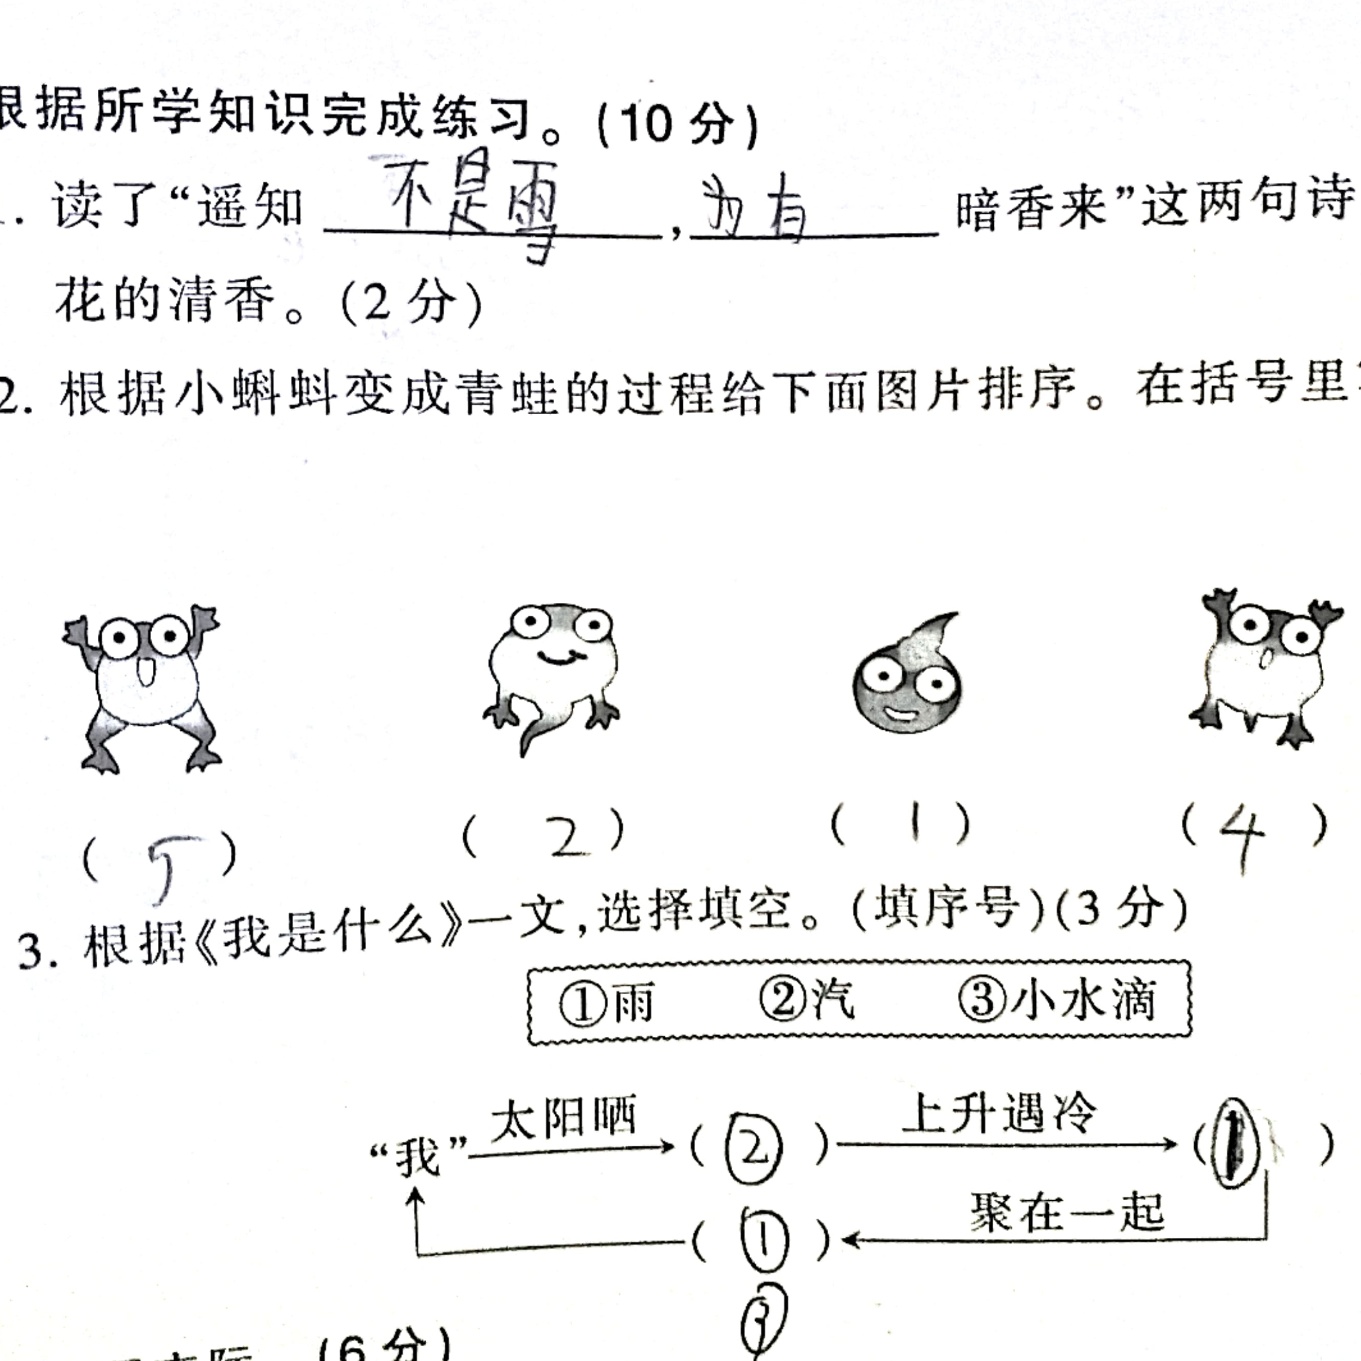 根据所学知识完成练习。(10 分)
. 读了“遥知 不是雪 , 为有 暗香来”这两句诗
花的清香。(2 分)
2. 根据小蝌蚪变成青蛙的过程给下面图片排序。在括号里
( 5 ) ( 2 ) ( 1 ) ( 4 )
3. 根据《我是什么》一文,选择填空。(填序号)(3 分)
①雨 ②汽 ③小水滴
“我” 太阳晒 ( ② ) 上升遇冷 ( ① )
( ① ) 聚在一起
③
(6 分)